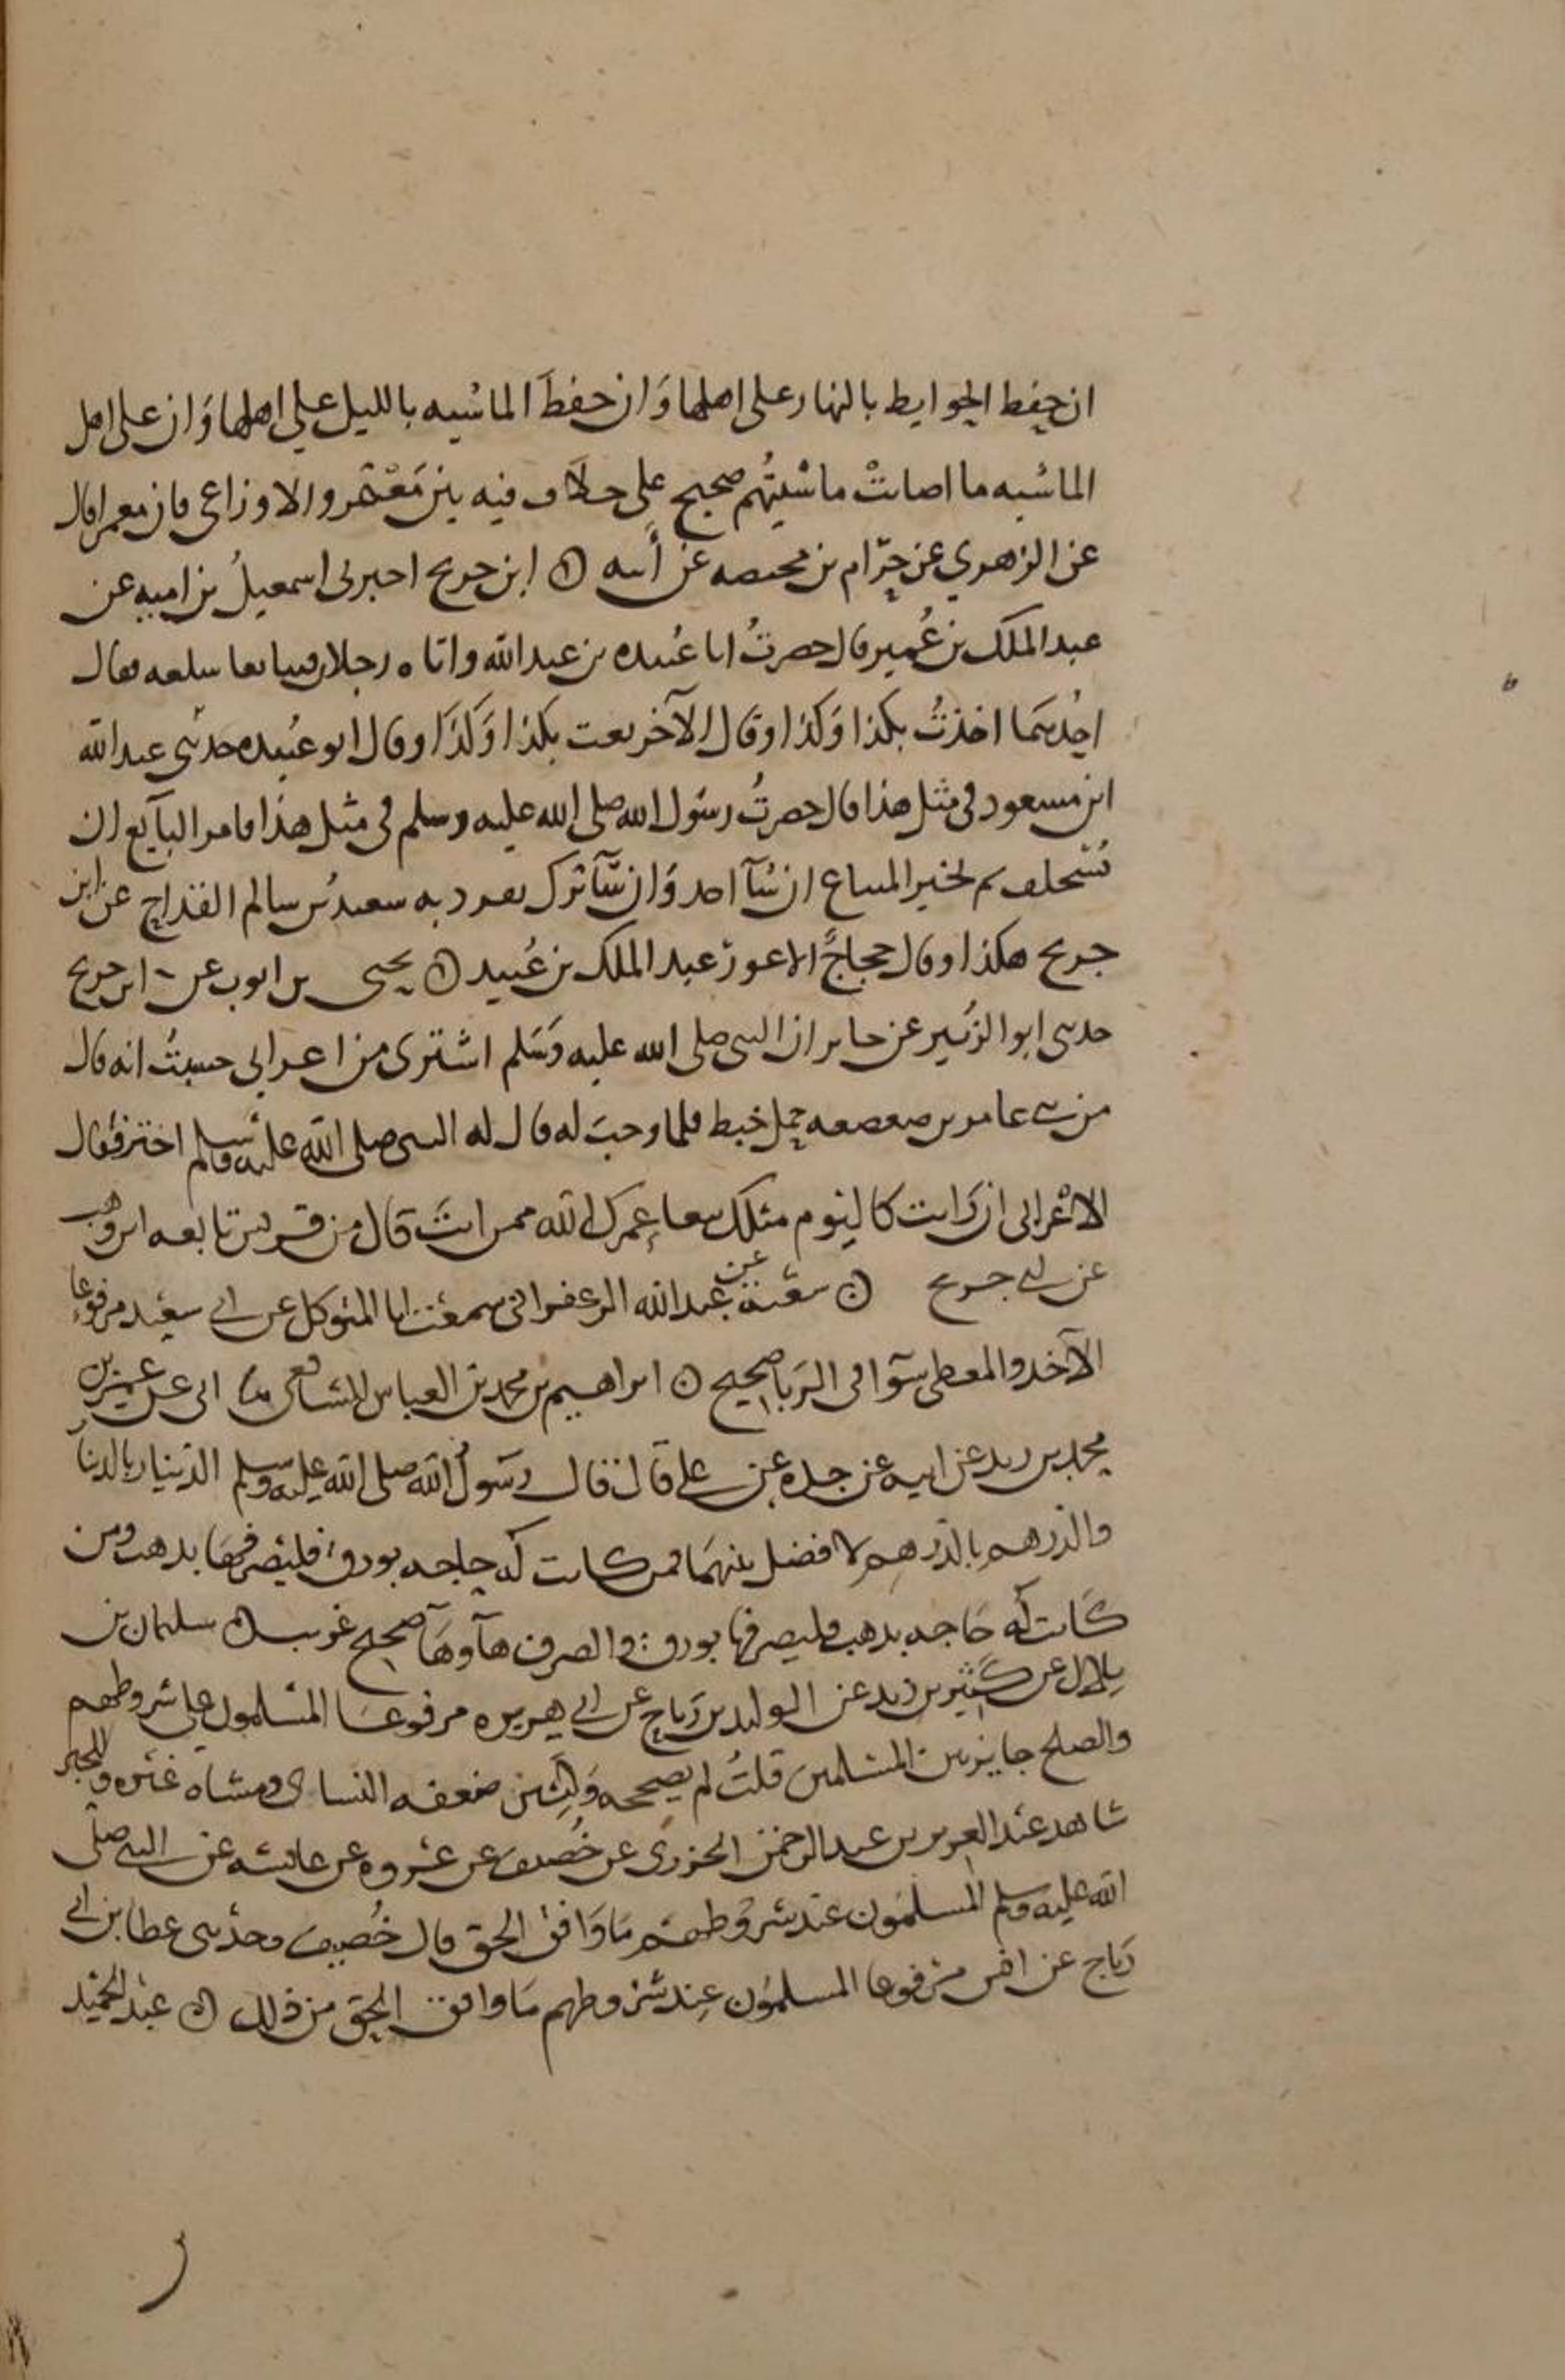 ان حفظ الحوايط بالنهار على اهلها وَان حفظَ الماشيه بالليل علي اهلها وَان على اهل
الماشيه ما اصابتْ ماشيتُهم صحيح على خلاف فيه بين مَعْمَر والاوزاعي فان معمرا قال
عن الزهري عن حرام بن محيصه عن أبيه ۞ ابن جريج اخبرني اسمعيلُ بن اميه عن
عبد الملك بن عُمير قال حضرتُ ابا عُبيده بن عبد الله واتاه رجلان تبايعا سلعه فقال
احدهما اخذتُ بكذا وَكذا وقال الآخر بعت بكذا وَكذَا وقال ابو عُبيده حدثني عبد الله
ابن مسعود في مثل هذا قال حضرتُ رسول الله صلى الله عليه وسلم في مثل هذا فامر البآيع ان
يُستحلف ثم يخير المبتاع ان شآ اخذ وَان شآ ترك تفرد به سعيدُ بن سالم القداح عن ابن
جريج هكذا وقال حجاجٌ الاعور عبد الملك بن عُبيد ۞ يحيى بن ايوب عن ابن جريج
حدثني ابو الزبير عن جابر ان النبي صلى الله عليه وَسَلم اشترى من اعرابي حسبتُ انه قال
من بني عامر بن صعصعه حمل خبط فلما وجب له قال له النبي صلى الله عليه وسلم اختر فقال
الاعرابي ان رَايت كاليوم مثلك بيعا عمرك الله ممن انتَ قال من قريش تابعه ابن وهب
عن ابن جريج ۞ شعبة عن عبد الله الزعفراني سمعت ابا المتوكل عن ابي سعيد مرفوعا
الآخذ والمعطي سَوآ في الرَبا صحيح ۞ ابراهيم بن محمد بن العباس الشافعي ثنا ابي عن عمر بن
محمد بن زيد عن ابيه عن جده عن علي قال قال رسَول الله صلى الله عليه وسلم الدينار بالدينار
والدرهم بالدرهم لا فضل بينهمَا فمن كانت له حاجه بورق فليصرفها بذهب ومن
كَانت له حَاجه بذهب فليصرفها بورق والصرف هآ وهَآ صحيح غريب ۞ سليمان بن
بلال عن كَثير بن زيد عن الوليد بن رَباح عن ابي هريره مرفوعَا المسْلمون على شروطهم
والصلح جايز بين المسلمين قلتُ لم يصححه وَكثير ضعفه النساى ومشاه غيره وللخبر
شاهد عبد العزيز بن عبد الرحمن الجزري عن خُصيف عن عُروه عن عائشه عن النبي صلى
الله عليه وسلم المسلمَون عند شروطهم مَا وَافق الحق قال خُصيف وحدثنى عطا بن ابي
رَباح عن انس مرفوعا المسلمُون عِند شروطهم مَا وافق الحق من ذلك ۞ عبد الحميد